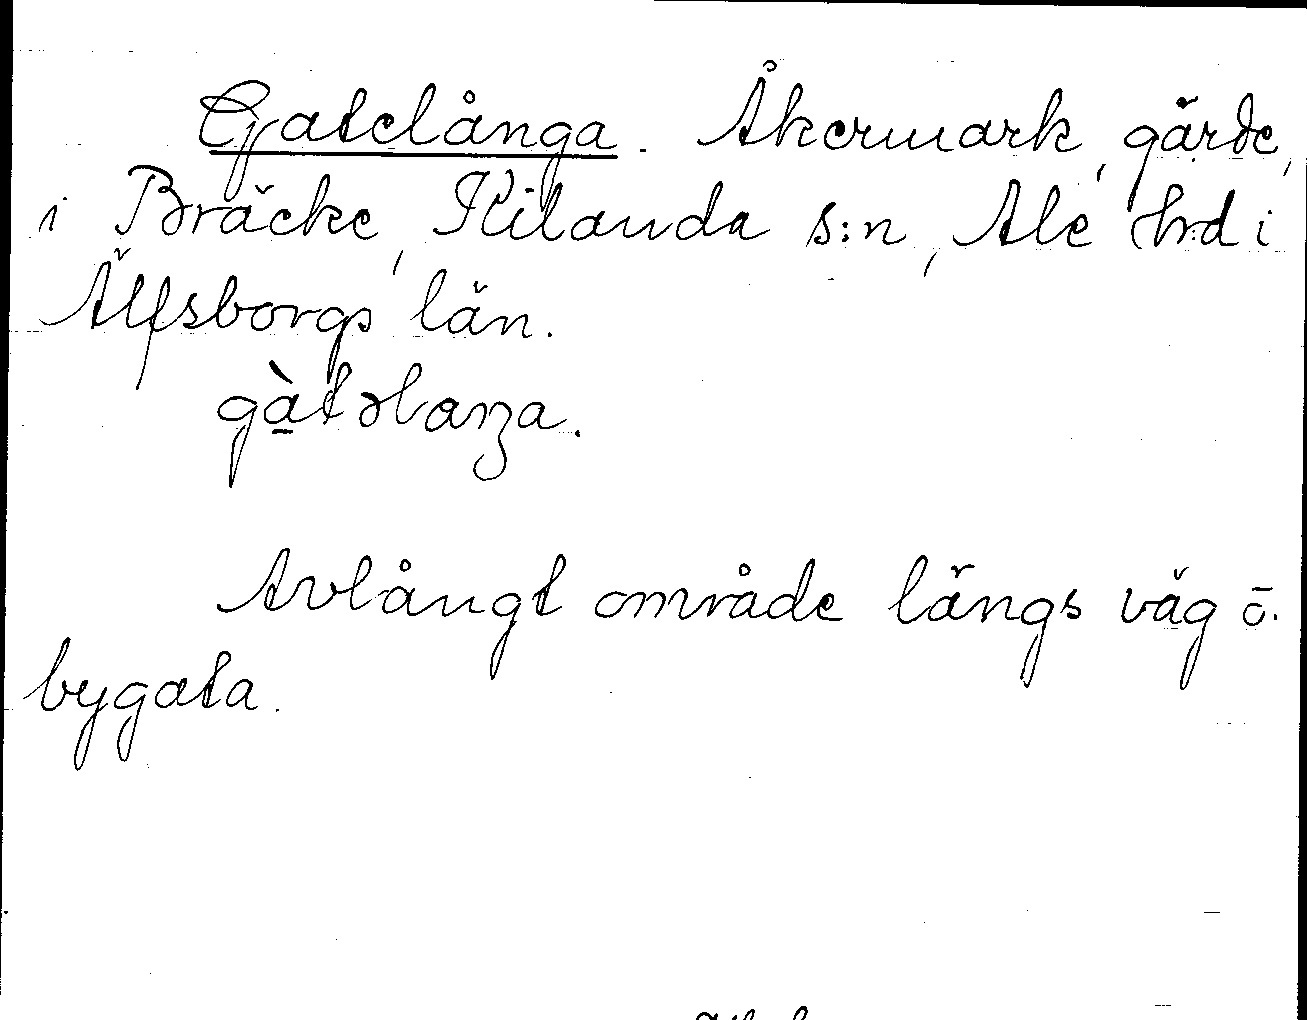 Gatelånga. Åkermark, gärde,
i Bräcke, Kilanda s:n, Ale hd i
Älfsborgs län.
gàtəlaŋa.
Avlångt område längs väg o.
bygata.